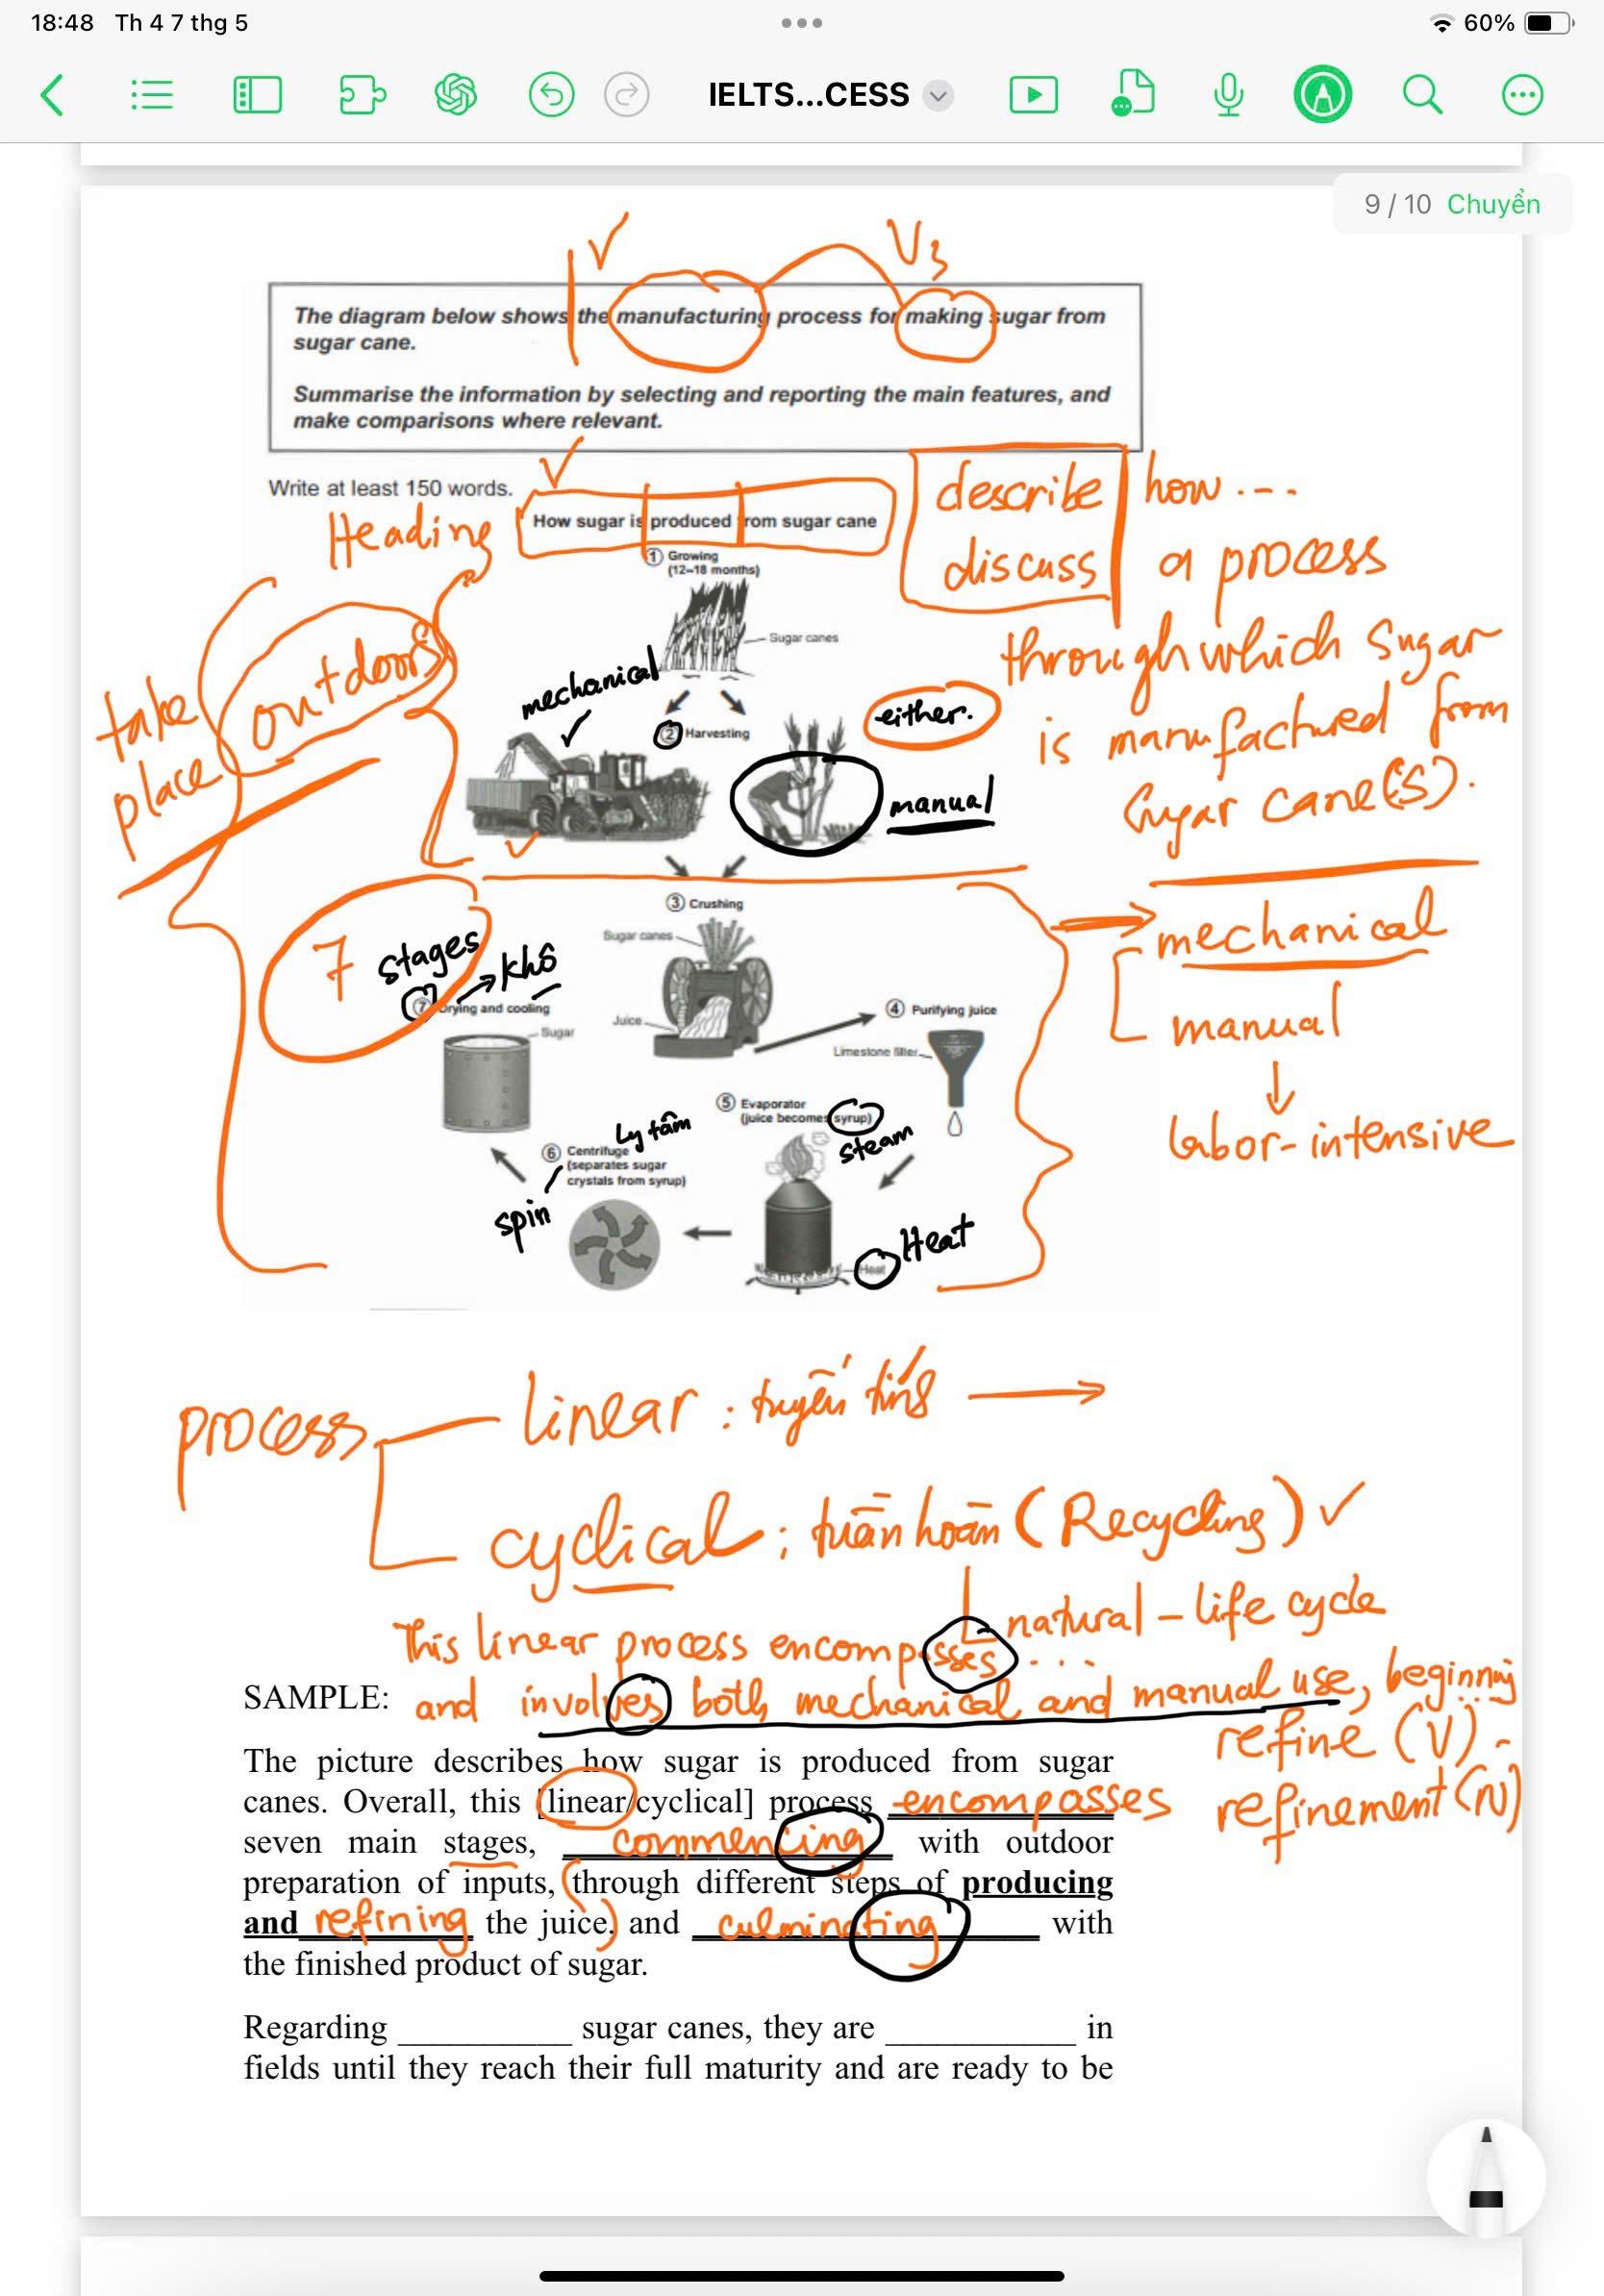 18:48 Th 4 7 thg 5
60%
IELTS...CESS
9 / 10 Chuyển
V3
The diagram below shows the manufacturing process for making sugar from
sugar cane.
Summarise the information by selecting and reporting the main features, and
make comparisons where relevant.
Write at least 150 words.
Heading
How sugar is produced from sugar cane
describe
discuss
how ...
a process
through which sugar
is manufactured from
sugar cane(s).
① Growing
(12–18 months)
Sugar canes
take
place
outdoors
mechanical
② Harvesting
either.
manual
mechanical
manual
labor-intensive
7 stages
khô
③ Crushing
Sugar canes
Juice
④ Purifying juice
Limestone filter
⑤ Evaporator
(juice becomes syrup)
steam
Heat
Heat
⑥ Centrifuge
(separates sugar
crystals from syrup)
Ly tâm
spin
⑦ Drying and cooling
Sugar
process
linear : tuyến tính
cyclical : tuần hoàn (Recycling)
natural – life cycle
This linear process encompasses ...
and involves both mechanical and manual use, beginning
refine (V)
refinement (N)
SAMPLE:
The picture describes how sugar is produced from sugar
canes. Overall, this [linear/cyclical] process encompasses
seven main stages, commencing with outdoor
preparation of inputs, through different steps of producing
and refining the juice, and culminating with
the finished product of sugar.
Regarding __________ sugar canes, they are ___________ in
fields until they reach their full maturity and are ready to be